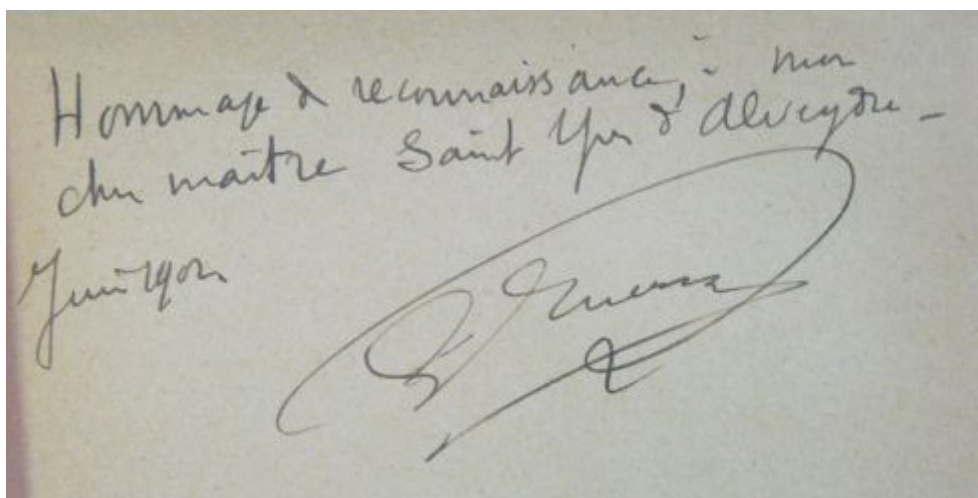 Hommage & reconnaissance, à mon
cher maître Saint Yves d'Alveydre -
Juin 1902